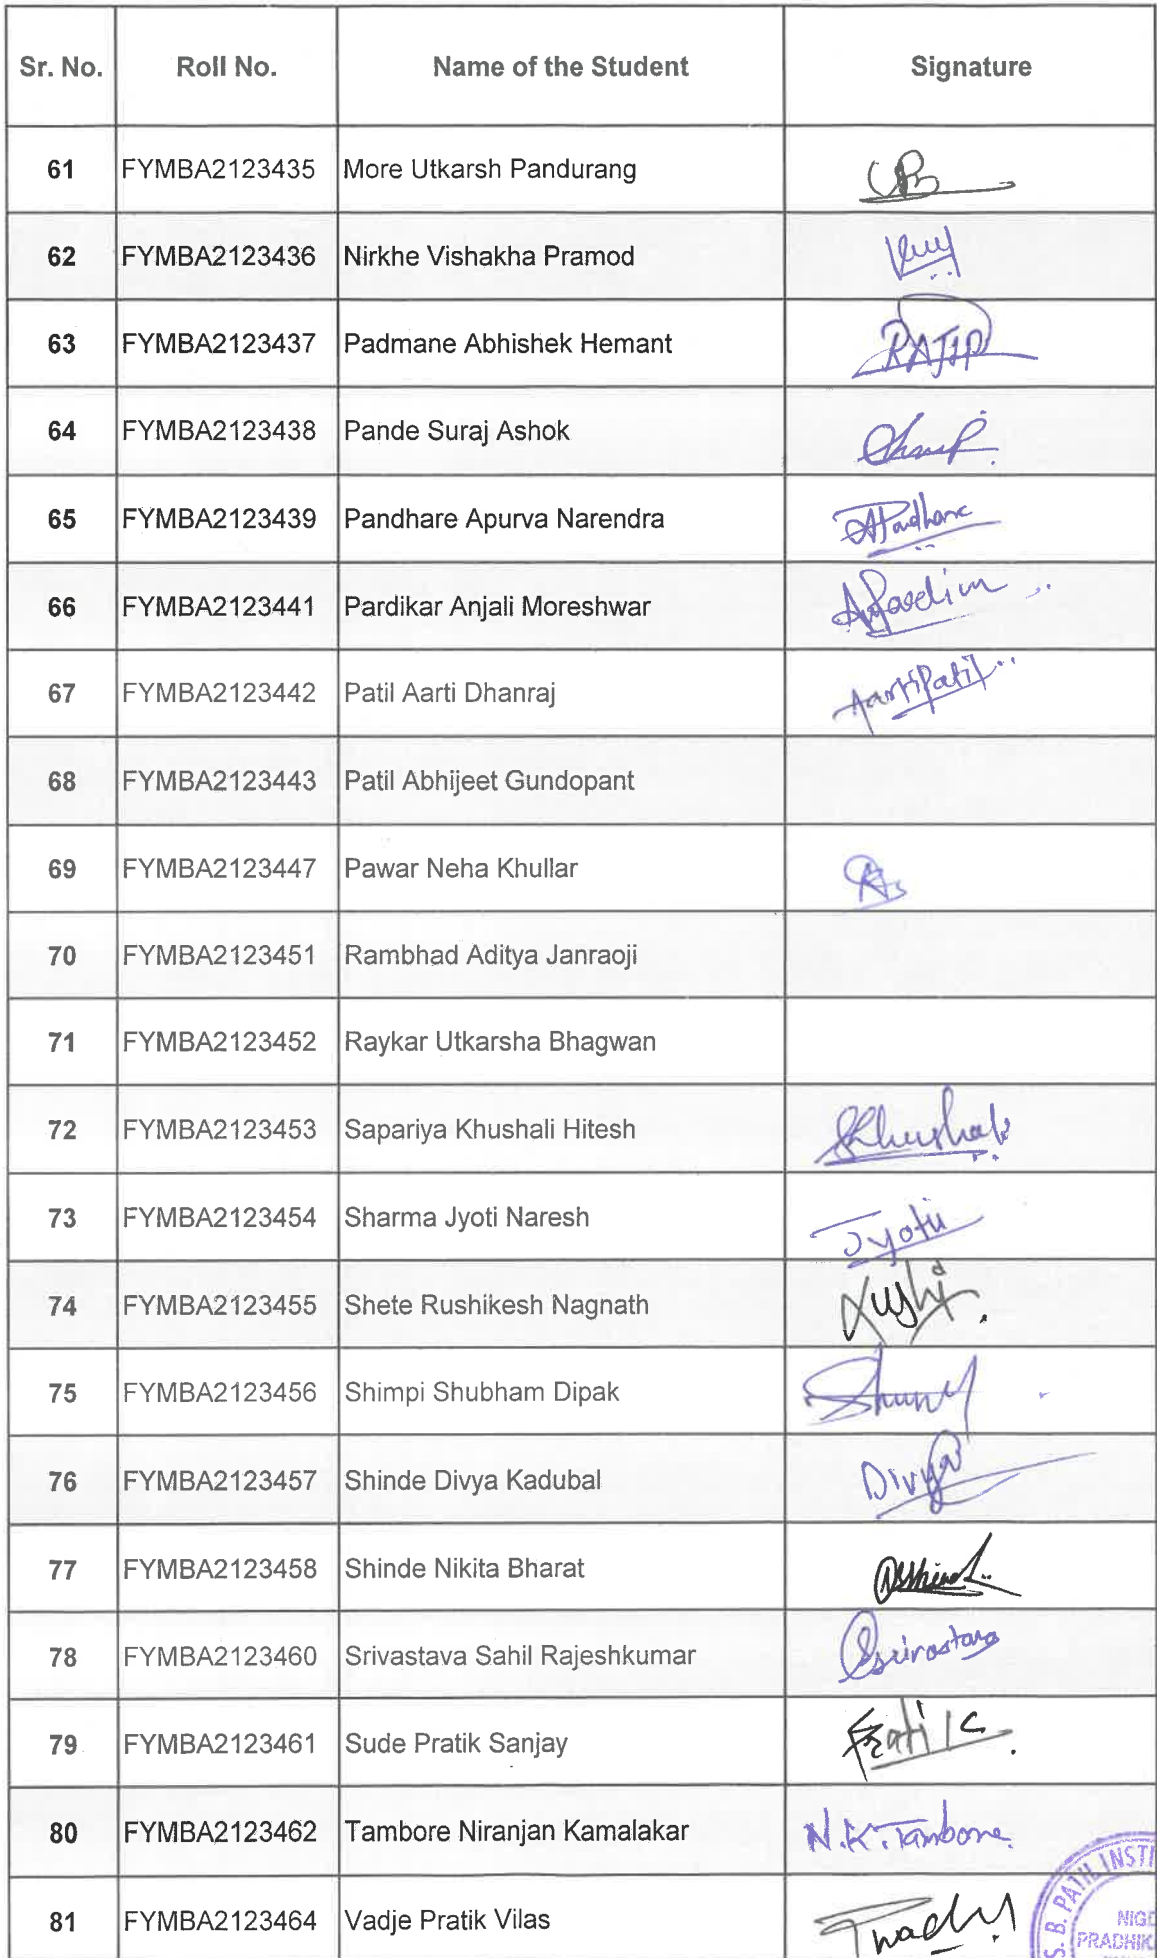 Sr. No. Roll No. Name of the Student Signature
61 FYMBA2123435 More Utkarsh Pandurang
62 FYMBA2123436 Nirkhe Vishakha Pramod
63 FYMBA2123437 Padmane Abhishek Hemant
64 FYMBA2123438 Pande Suraj Ashok
65 FYMBA2123439 Pandhare Apurva Narendra APandhare
66 FYMBA2123441 Pardikar Anjali Moreshwar
67 FYMBA2123442 Patil Aarti Dhanraj AartiPatil
68 FYMBA2123443 Patil Abhijeet Gundopant
69 FYMBA2123447 Pawar Neha Khullar
70 FYMBA2123451 Rambhad Aditya Janraoji
71 FYMBA2123452 Raykar Utkarsha Bhagwan
72 FYMBA2123453 Sapariya Khushali Hitesh
73 FYMBA2123454 Sharma Jyoti Naresh Jyoti
74 FYMBA2123455 Shete Rushikesh Nagnath
75 FYMBA2123456 Shimpi Shubham Dipak
76 FYMBA2123457 Shinde Divya Kadubal Divya
77 FYMBA2123458 Shinde Nikita Bharat
78 FYMBA2123460 Srivastava Sahil Rajeshkumar
79 FYMBA2123461 Sude Pratik Sanjay
80 FYMBA2123462 Tambore Niranjan Kamalakar N.K.Tambore
81 FYMBA2123464 Vadje Pratik Vilas
S. B. PATIL INSTI
NIGD
PRADHIK